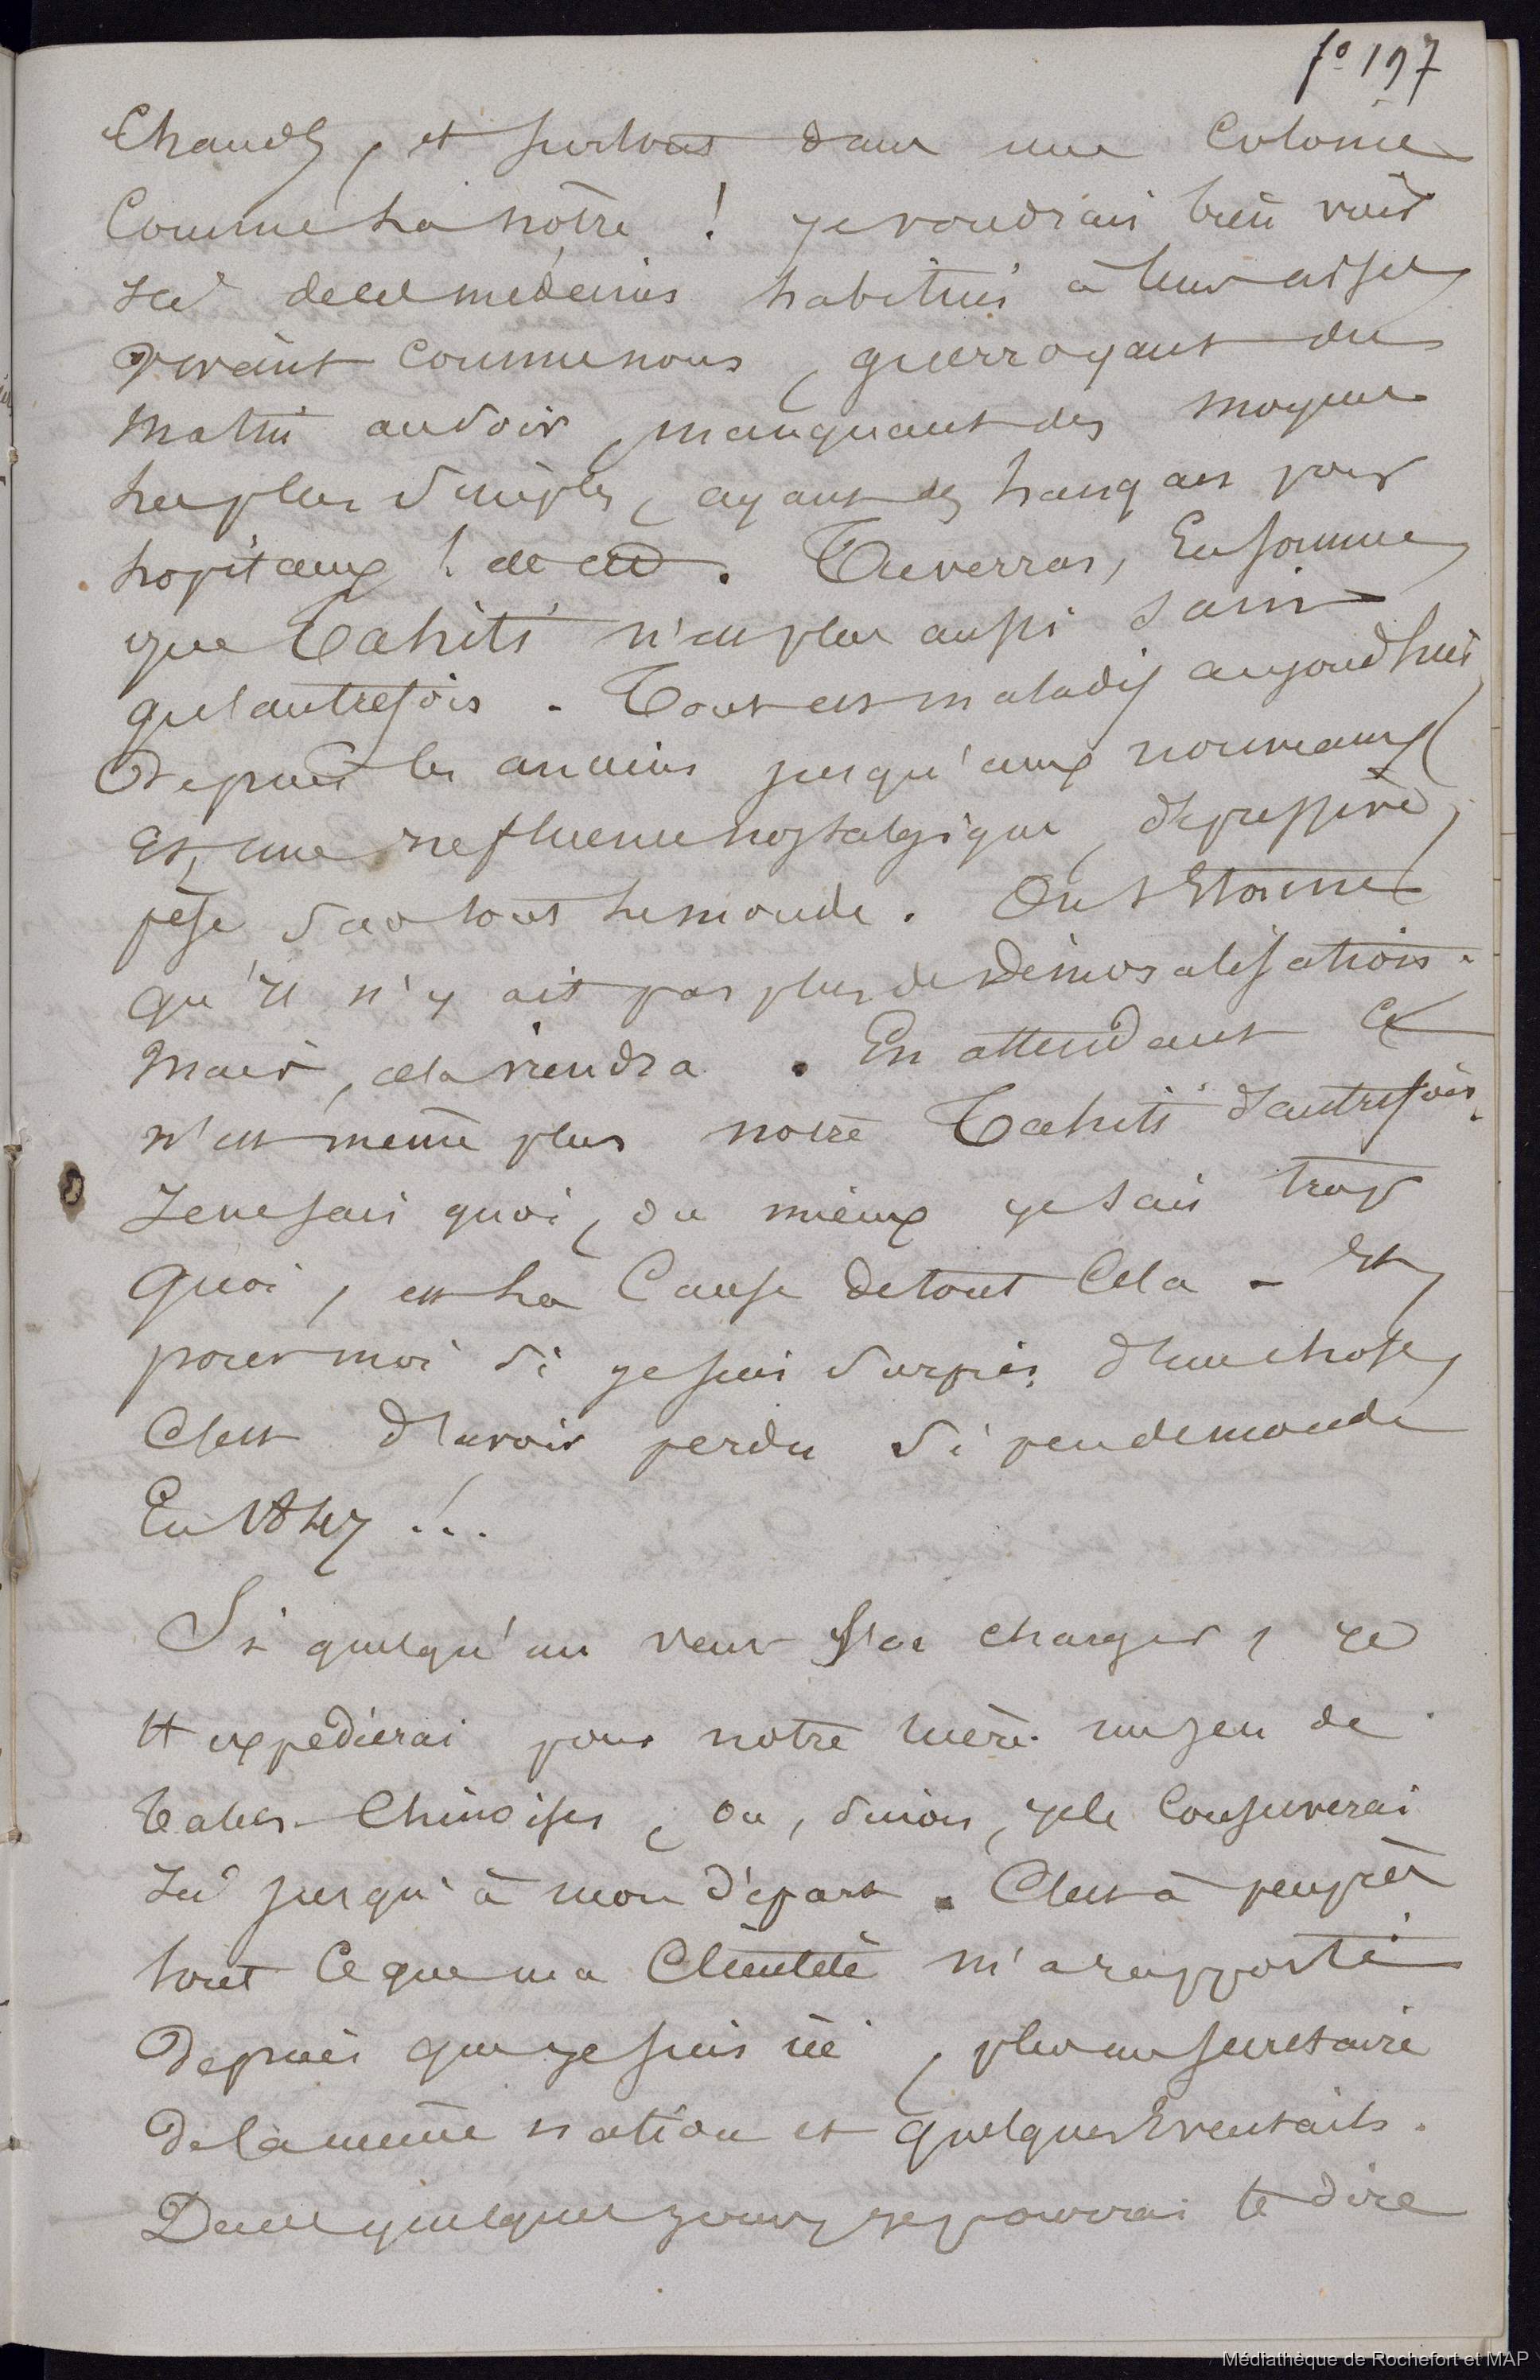 fo 197
Chauds, et surtout dans une Colonie
Comme la nôtre ! je voudrais bien voir
Ici de ces médecins habitués à leur aise,
vivant comme nous, guerroyant du
matin au soir, manquant des moyens
les plus simples, ayant des hangars pour
hopitaux ! etc etc. Tu verras, En somme,
que Tahiti n'est plus aussi sain
qu'autrefois. Tout est maladif aujourd'hui
Depuis les anciens jusqu'aux nouveaux
Et, une influence nostalgique, dépressive,
pèse sur tout le monde. On s'étonne
qu'il n'y ait pas plus de Démoralisation.
Mais, cela viendra. En attendant Ce
n'est même plus notre Tahiti d'autrefois.
Je ne sais quoi, ou mieux je sais trop
quoi, est la Cause de tout Cela - Et,
pour moi si je suis surpris d'une chose,
C'est d'avoir perdu si peu de monde
En 1847 !..
Si quelqu'un veut s'en charger, je
t'expédierai pour notre mère un jeu de
tables Chinoises, ou, sinon, je le Conserverai
Ici jusqu'à mon départ. C'est à peu près
tout Ce que ma Clientèle m'a rapporté
Depuis que je suis ici, plus un secretaire
de la même nation et quelques Eventails.
Dans quelques jours, je pourrai te dire
Médiathèque de Rochefort et MAP